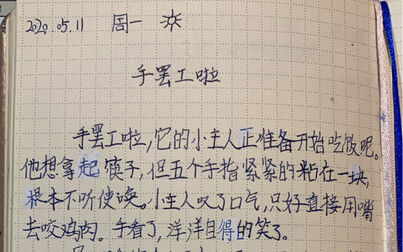 2020.05.11 周一
手罢工啦
手罢工啦,它的小主人正准备开始吃饭呢。
他想拿起筷子,但五个手指紧紧的粘在一块,
根本不听使唤。小主人叹了口气,只好直接用嘴
去咬鸡肉。手看了,洋洋自得的笑了。